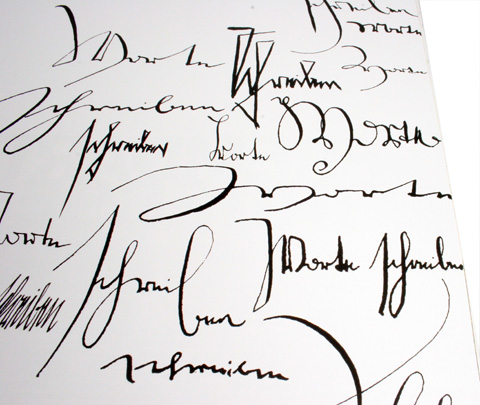 schreiben
Worte
Worte Schreiben Worte
Schreiben Worte
schreiben Worte
Worte
Worte schreiben Worte schreiben
schreiben
schreiben